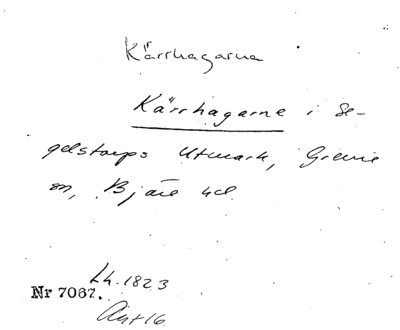 Kärrhagarna
Kärrhagarne i Se-
gelstorps Utmark, Grevie
sn, Bjäre hd.
Lh. 1823
Nr 7067.
Akt 16